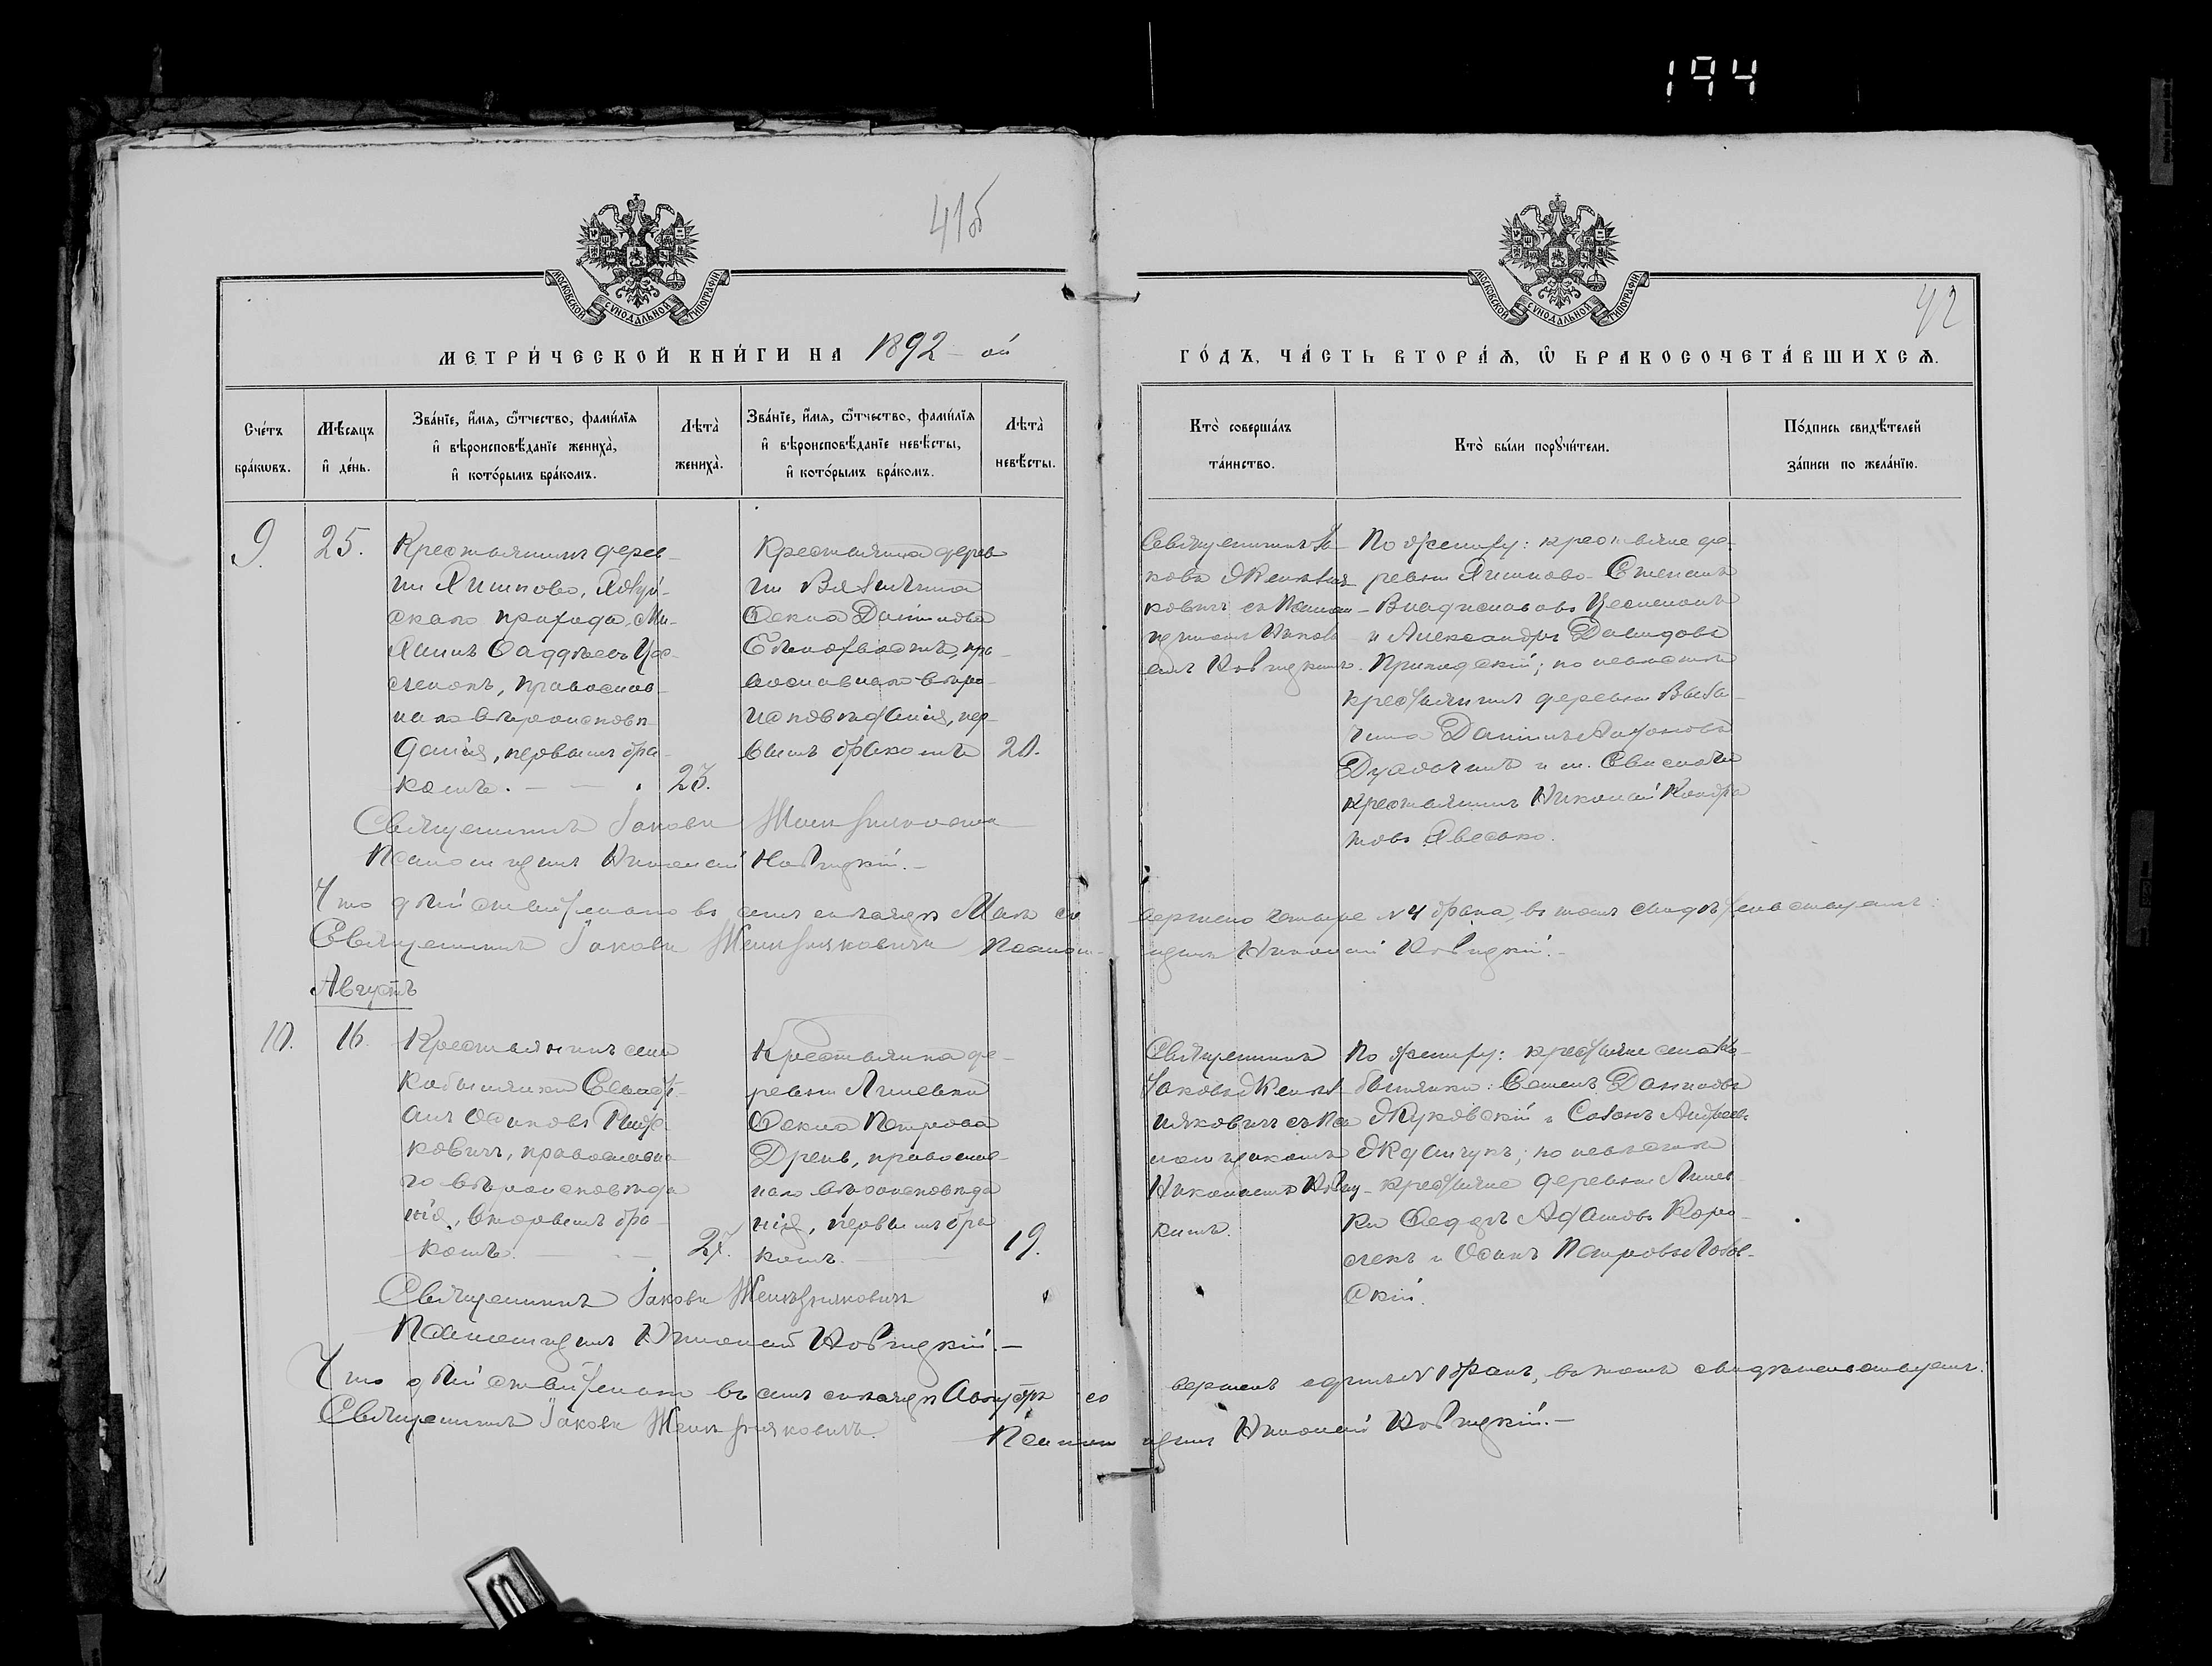 194
41об
42
МОСКОВСКОЙ СѴНОДАЛЬНОЙ ТИПОГРАФІИ
МОСКОВСКОЙ СѴНОДАЛЬНОЙ ТИПОГРАФІИ
МЕТРИ́ЧЕСКОЙ КНИ́ГИ НА 1892-ой
ГО́ДЪ, ЧА́СТЬ ВТОРА́Ѧ, Ѽ БРАКОСОЧЕТА́ВШИХСѦ.
Сче́тъ
бра́кѡвъ.
Мѣ́сяцъ
и҆ де́нь.
Зва́нїе, и҆́мѧ, ѻ҆́тчество, фами́лїѧ
и҆ вѣроисповѣ́данїе жениха̀,
и҆ кото́рымъ бра́комъ.
Лѣта̀
жениха̀.
Зва́нїе, и҆́мѧ, ѻ҆́тчество, фами́лїѧ
и҆ вѣроисповѣ́данїе невѣ́сты,
и҆ кото́рымъ бра́комъ.
Лѣта̀
невѣ́сты.
Кто̀ соверша́лъ
та́инство.
Кто̀ бы́ли порꙋчи́тели.
По́дпись свидѣ́телей
за́писи по жела́нїю.
9.
25.
Крестьянинъ дерев-
ни
скаго прихода, Ми-
хаилъ Фаддѣевъ
православ-
наго вѣроисповѣ-
данія, первымъ бра-
комъ.
23.
Крестьянка дерев
ни
Фекла Даниилова
пра-
вославнаго вѣро-
исповѣданія, пер-
вымъ бракомъ
20.
Священникъ Іа-
ковъ
ковичъ съ псалом-
щикомъ Никола-
емъ Новицкимъ.
По жениху: крестьяне де-
ревни Степанъ
Владиславовъ
и Александръ Давидовъ
по невѣстѣ
крестьянинъ деревни
Даніилъ
и м. Свислочи
крестьянинъ Николай Кондра
товъ
Священникъ Іаковъ
Псаломщикъ Николай Новицкій.-
Что дѣйствительно въ семъ мѣсяцѣ Маѣ со
вершено четыре №4 брака, въ томъ свидѣтельствуемъ:
Священникъ Іаковъ Псалом-
щикъ Николай Новицкій.-
Августъ
10.
16.
Крестьянинъ села
Осиповъ
ковичъ, православна
го вѣроисповѣда
нія, вторымъ бра-
комъ.
27.
Крестьянка де-
ревни
Фекла Петрова
Дрень, православ-
наго вѣроисповѣда
нія, первымъ бра
комъ.
19.
Священникъ
Іаковъ
няковичъ съ пса
ломщикомъ
Николаемъ Новиц-
кимъ.
По жениху: крестьяне села Ко-
Семенъ Данииловъ
Жуковскій и Созонъ Андреевъ
по невѣстѣ
крестьяне деревни
ки Феодоръ Адамовъ Коро-
лекъ и Осипъ Петровъ
скій.
Священникъ Іаковъ
Псаломщикъ Николай Новицкій.-
Что дѣйствительно въ семъ мѣсяцѣ Августѣ со
вершенъ одинъ №1 бракъ, въ томъ свидѣтельствуемъ:
Священникъ Іаковъ
Псалом щикъ Николай Новицкій.-